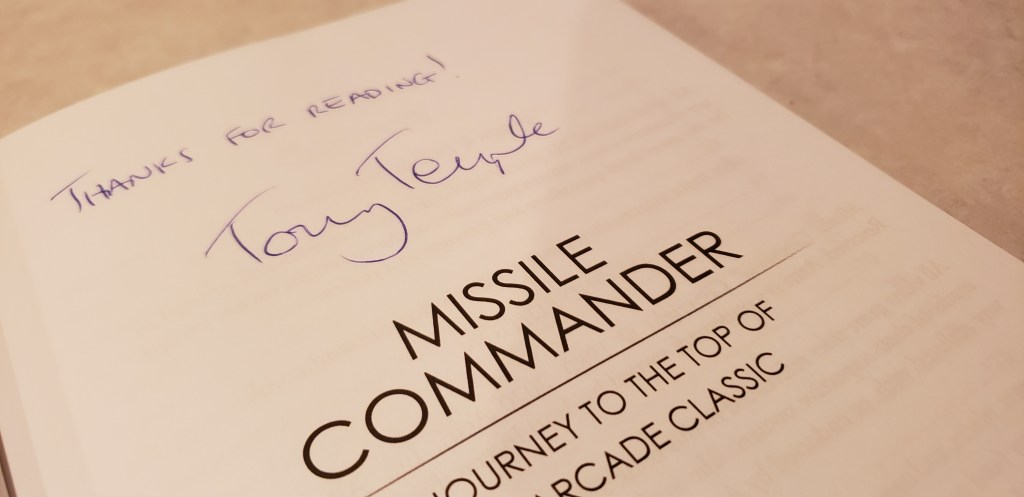 THANKS FOR READING!
Tony Temple
MISSILE
COMMANDER
JOURNEY TO THE TOP OF
ARCADE CLASSIC